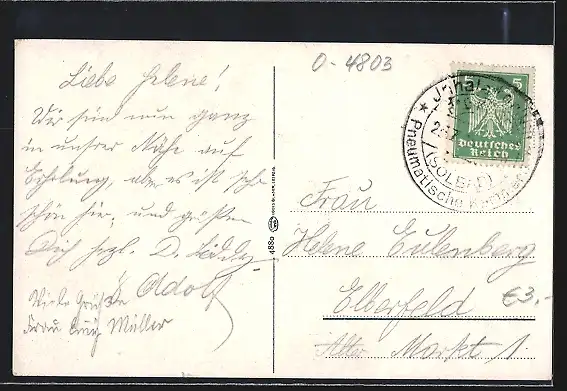 Liebe Helene!
Wir sind nun ganz
in unsrer Nähe auf
Erholung, aber es ist sehr
schön hier, und grüßen
Dich herzl. D.
& Adolf
Viele Grüße
Frau Müller
488a
0-4803
5 5
Deutsches
Reich
Pneumatische
(SOLBAD)
Frau
Helene Eulenberg
Elberfeld
€3.-
Alter Markt 1